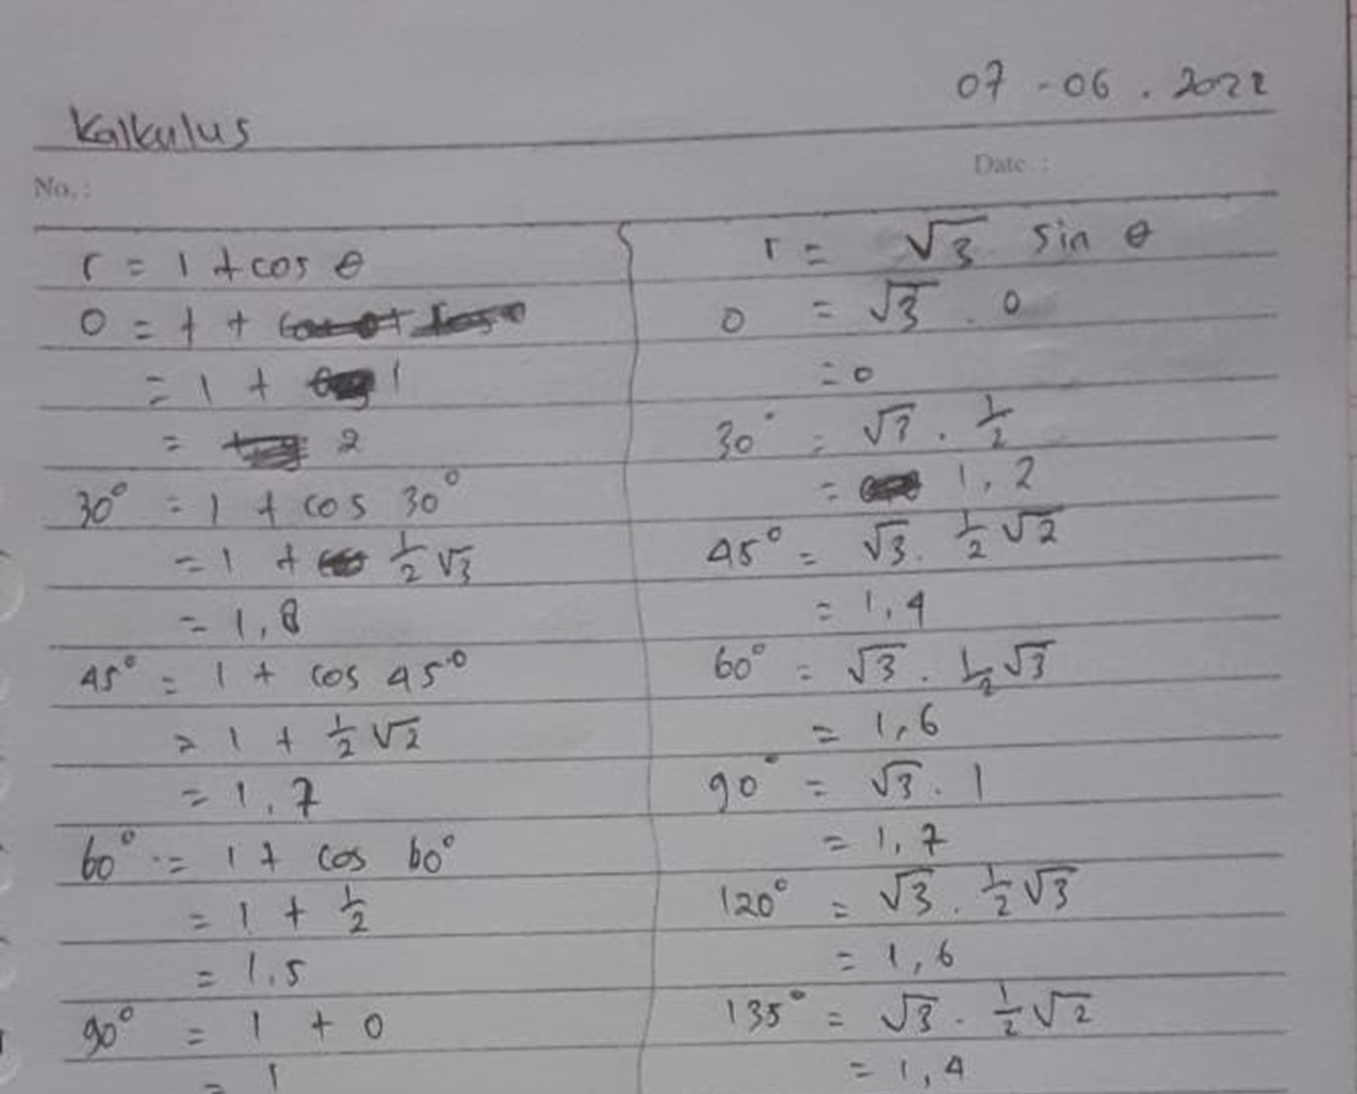 07 - 06 . 2022
Kalkulus
Date. :
No. :
r = 1 + cos θ
0 = 1 +
= 1 + 1
= 2
30° = 1 + cos 30°
= 1 + 1/2 √3
= 1,8
45° = 1 + cos 45°
= 1 + 1/2 √2
= 1,7
60° = 1 + cos 60°
= 1 + 1/2
= 1,5
90° = 1 + 0
= 1
r = √3 sin θ
0 = √3 . 0
= 0
30° = √3 . 1/2
= 1,2
45° = √3 . 1/2 √2
= 1,4
60° = √3 . 1/2 √3
= 1,6
90° = √3 . 1
= 1,7
120° = √3 . 1/2 √3
= 1,6
135° = √3 . 1/2 √2
= 1,4